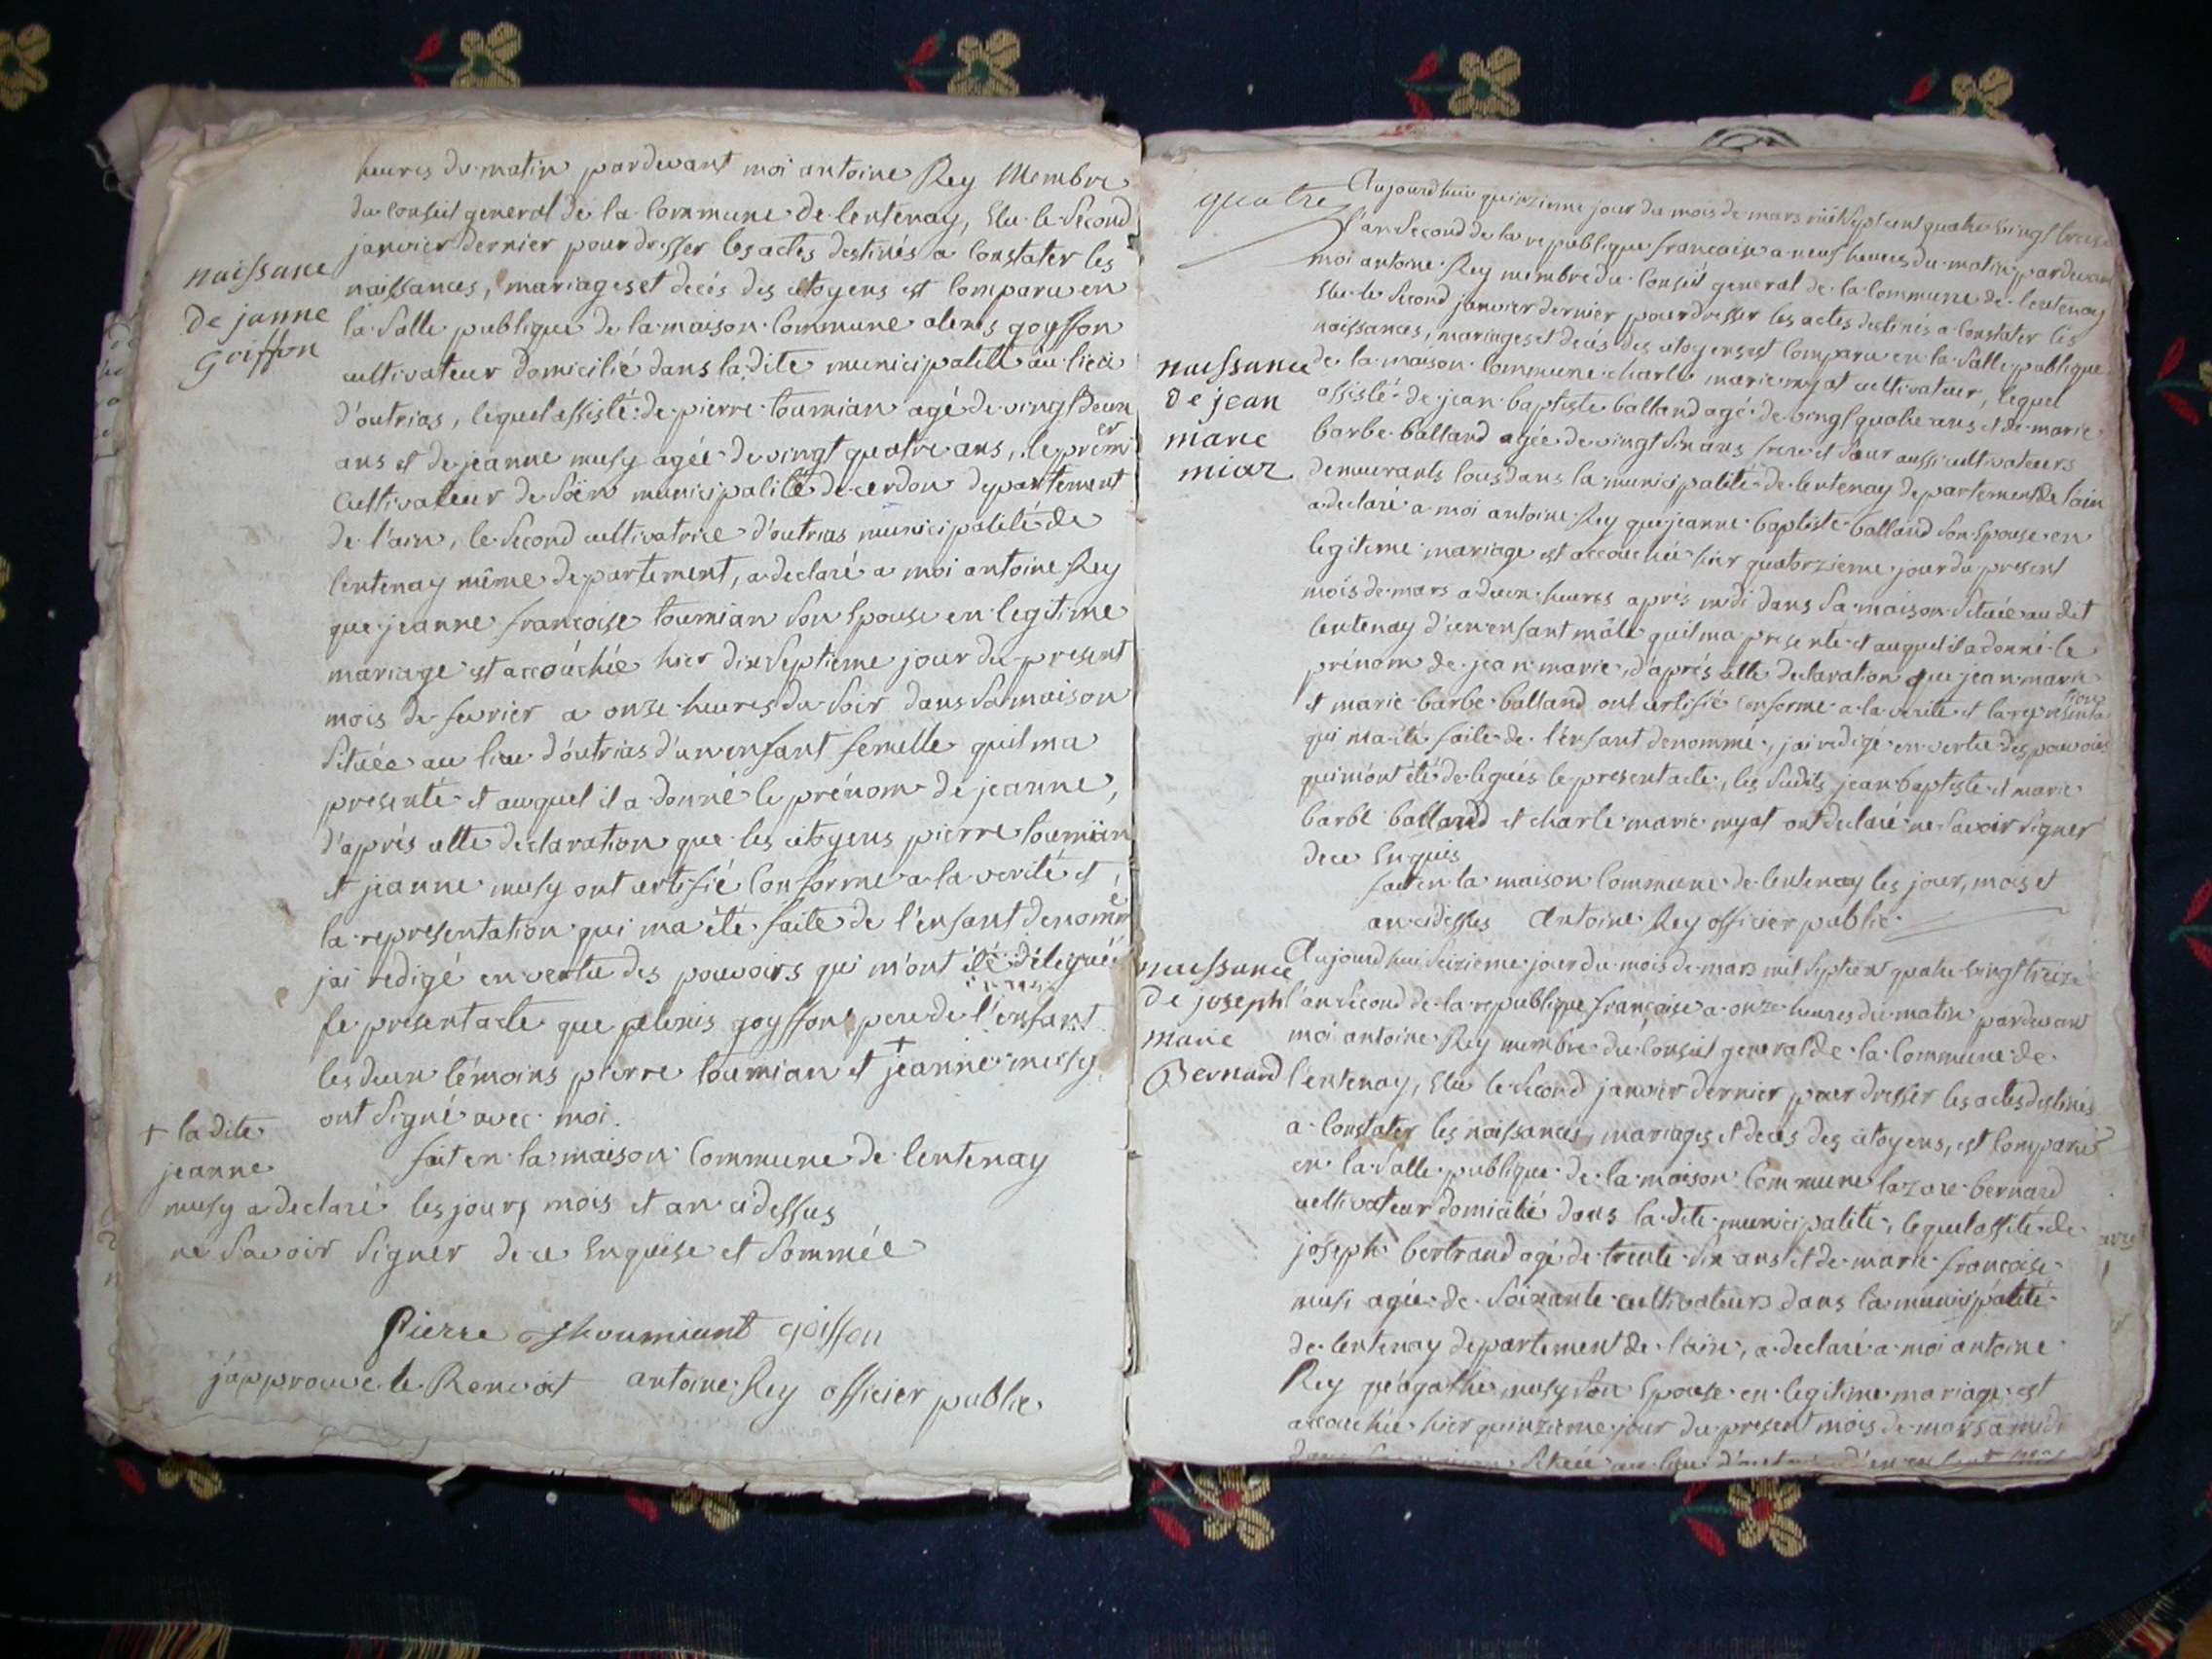 heures du matin pardevant moi antoine Rey Membre
du conseil general de la commune de lentenay, Elu le Second
janvier dernier pour dresser les actes destinés a constater les
naissances, mariages et décés des citoyens est comparu en
la Salle publique de la maison commune alexis goyffon
cultivateur domicilié dans la dite municipalité au lieu
d'outrias, lequel assisté de pierre toumian agé de vingt deux
ans et de jeanne musy agée de vingt quatre ans, le prémier
cultivateur de municipalité de cerdon departement
de l'ain, le Second cultivatrice d'outrias municipalité de
lentenay même departement, a declaré a moi antoine Rey
que jeanne francoise toumian Son Epouse en legitime
mariage est accouchée hier dix Septieme jour du present
mois de fevrier a onze heures du Soir dans Sa maison
Située au lieu d'outrias d'un enfant femelle quil ma
presenté et auquel il a donné le prénom de jeanne,
d'aprés cette declaration que les citoyens pierre toumian
et jeanne musy ont certifié conforme a la verité et
la representation qui ma été faite de l'enfant denommé
jai redigé en vertu des pouvoirs qui m'ont été délégués
le present acte que alexis goyffon pere de l'enfant
les deux témoins pierre toumian et + jeanne musy
ont Signé avec moi.
fait en la maison commune de lentenay
les jour, mois et an cidessus
naissance
de janne
goiffon
+ la dite
jeanne
musy a declaré
ne Savoir Signer de ce Enquise et Sommée
Pierre goiffon
japprouve le Renvoit antoine Rey officier public
quatre
Aujourdhui quinzieme jour du mois de mars mil Sept cent quatre vingt treize
l'an Second de la republique francaise a neuf heures du matin pardevant
moi antoine Rey membre du conseil general de la commune de lentenay
Elu le Second janvier dernier pour dresser les actes destinés a constater les
naissances, mariages et decés des citoyens est comparu en la Salle publique
de la maison commune charle marie myat cultivateur, lequel
assisté de jean baptiste balland agé de vingt quatre ans et de marie
barbe balland agée de vingt Six ans frere et Sœur aussi cultivateurs
demeurants tous dans la municipalité de lentenay departement de lain
a declaré a moi antoine Rey que jeanne baptiste balland Son Epouse en
legitime mariage est accouchée hier quatorzieme jour du present
mois de mars a deux heures aprés midi dans Sa maison Située au dit
lentenay d'un enfant mâle quil ma presenté et auquel il a donné le
prénom de jean marie, d'aprés cette declaration que jean marie
et marie barbe balland ont certifié conforme a la verité et la representation
qui ma été faite de l'enfant denommé, jai redigé en vertu des pouvoirs
qui m'ont été delegués le present acte, les Sudits jean baptiste et marie
barbe balland et charle marie myat ont declaré ne Savoir Signer
de ce Enquis
fait en la maison commune de lentenay les jour, mois et
an cidessus Antoine Rey officier public
naissance
de jean
marie
miaz
Aujourdhui Seizieme jour du mois de mars mil Sept cent quatre vingt treize
l'an Second de la republique francaise a onze heures du matin pardevant
moi antoine Rey membre du conseil general de la commune de
lentenay, Elu le Second janvier dernier pour dresser les actes destinés
a constater les naissances, mariages et decés des citoyens, est comparu
en la Salle publique de la maison commune lazare bernard
cultivateur domicilié dans la dite municipalité, lequel assité de
joseph bertrand agé de trente Six ans et de marie francoise
musi agée de Soixante cultivateurs dans la municipalité
de lentenay departement de lain, a declaré a moi antoine
Rey qu'agathe musy Son Epouse en legitime mariage est
accouchée hier quinzieme jour du present mois de mars a midi
naissance
de joseph
marie
Bernard